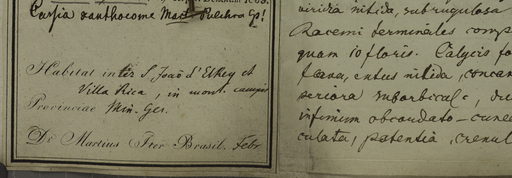 Cassia xanthocoma Mart. pulchra Gs!
Habitat inter S. Joaõ d'Elrey et
Villa Rica, in mont. campis
Provinciae Min. Ger.
De Martius Iter Brasil. Febr.
viridia nitida, subrugulosa
Racemi terminales comp
quam 10 floris. Calycis fo
flava, entus nitida, concav
seriora suborbicul., du
infimum obcordato-cunea
culata, patentia, crenul